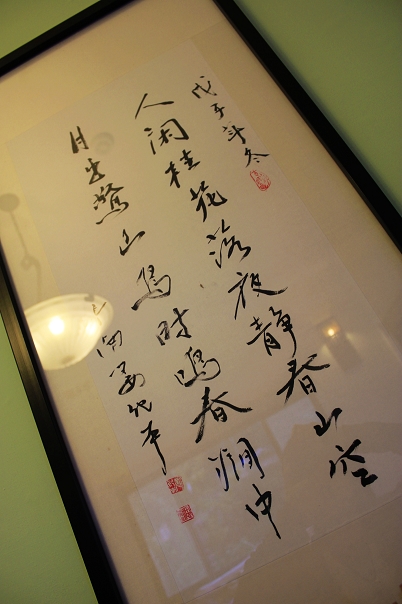 戊子
人闲桂花落夜静春山空
月出驚山鸟时鸣春涧中